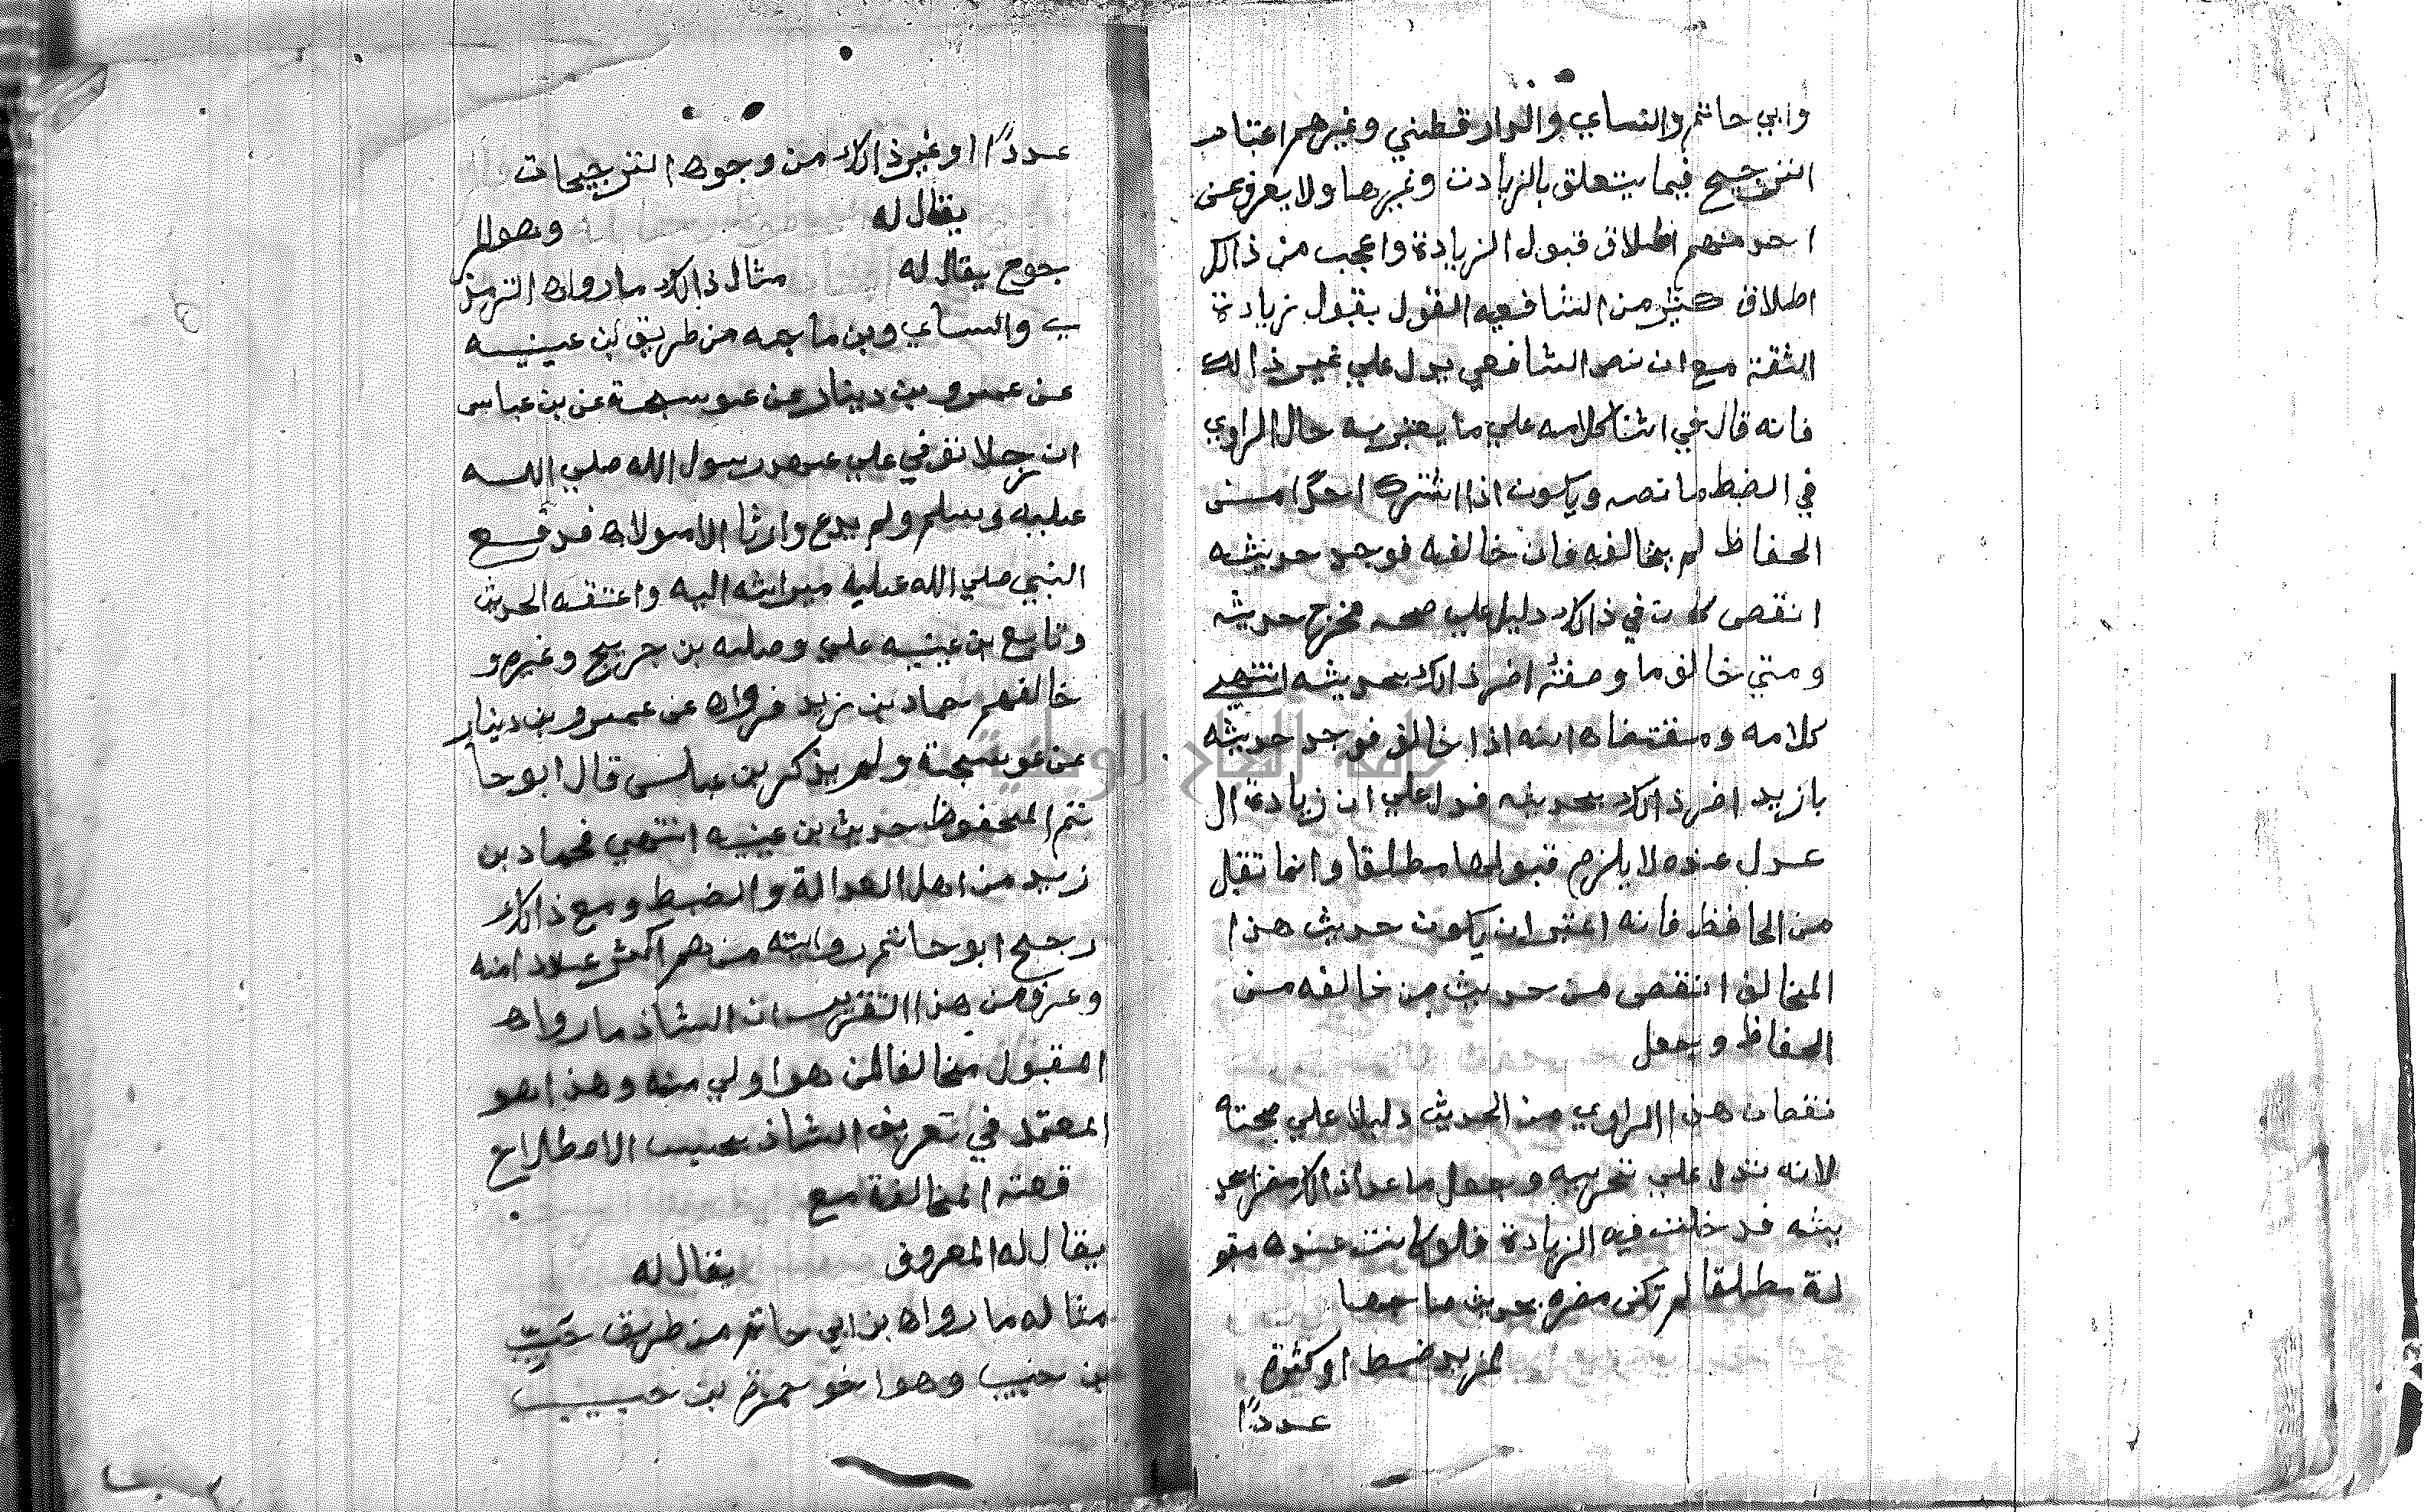 وابي حاتم والنساي والدارقطني وغيرهم اعتبار
الترجيح فيما يتعلق بالزيادت وغيرها ولا يعرف عن
احد منهم اطلاق قبول الزيادة واعجب من ذالك
اطلاق كثير من الشافعيه القول بقبول زيادة
الثقة مع ان نص الشافعي يدل علي غير ذالك
فانه قال في اثنا كلامه علي ما يعتبر به حال الراوي
في الضبط ما نصه ويكون اذا اشترك احدًا من
الحفاظ لم يخالفه فان خالفه فوجد حديثه
انقص كان في ذالك دليل علي صحه مخرج حديثه
ومتي خالف ما وصفت اضر ذالك بحديثه انتهي
كلامه ومقتضاه انه اذا خالف فوجد حديثه
بازيد اضر ذالك بحديثه فدل علي ان زيادة ال
عدل عنده لا يلزم قبولها مطلقا وانما تقبل
من الحافظ فانه اعتبر ان يكون حديث هذا
المخالف انقص من حديث من خالفه من
الحفاظ وجعل
نقصان هذا الراوي من الحديث دليلا علي صحته
لانه تدل علي تحريه وجعل ما عدا ذالك مضرا بحد
يثه فدخلت فيه الزيادة فلو كانت عنده مقبو
لة مطلقا لم تكن مضرة بحديث صاحبها
لمزيد ضبط او كثرة
عددًا
عددًا او غير ذالك من وجوه الترجيحات
يقال له وهو المر
جوح يقال له مثال ذالك ما رواه الترمذ
ي والنساي وبن ماجه من طريق بن عيينه
عن عمرو بن دينار عن عوسجة عن بن عباس
ان رجلا توفي علي عهد رسول الله صلي الله
عليه وسلم ولم يدع وارثا الا مولاه فدفع
النبي صلي الله عليه ميراثه اليه واعتقه الحديث
وتابع بن عيينه علي وصله بن جريج وغيره و
خالفهم حماد بن زيد فرواه عن عمرو بن دينار
عن عوسجة ولم يذكر بن عباس قال ابو حا
تم المحفوظ حديث بن عيينه انتهي فحماد بن
زيد من اهل العدالة والضبط ومع ذالك
رجح ابو حاتم روايته من هم اكثر عددا منه
وعرف من هذا التقرير ان الشاذ ما رواه
المقبول مخالفا لمن هو اولي منه وهذا هو
المعتمد في تعريف الشاذ بحسب الاصطلاح
المخالفة مع
يقال له المعروف يقال له
مثاله ما رواه بن ابي حاتم من طريق حبيّب
بن حبيب وهو اخو حمزة بن حبيب